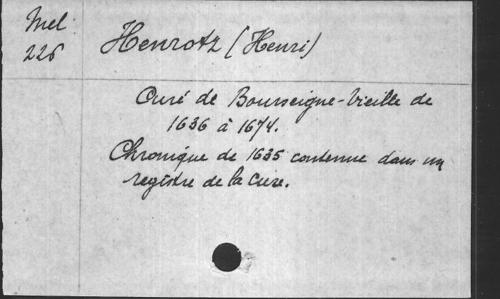 Mel.
226
Henrotz (Henri)
Curé de Bourseigne-Vieille de
1636 à 1674.
Chronique de 1635 contenue dans un
registre de la Cure.